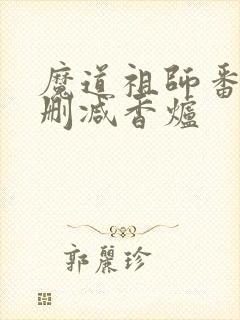 魔道祖師番
刪减香爐
郭麗珍